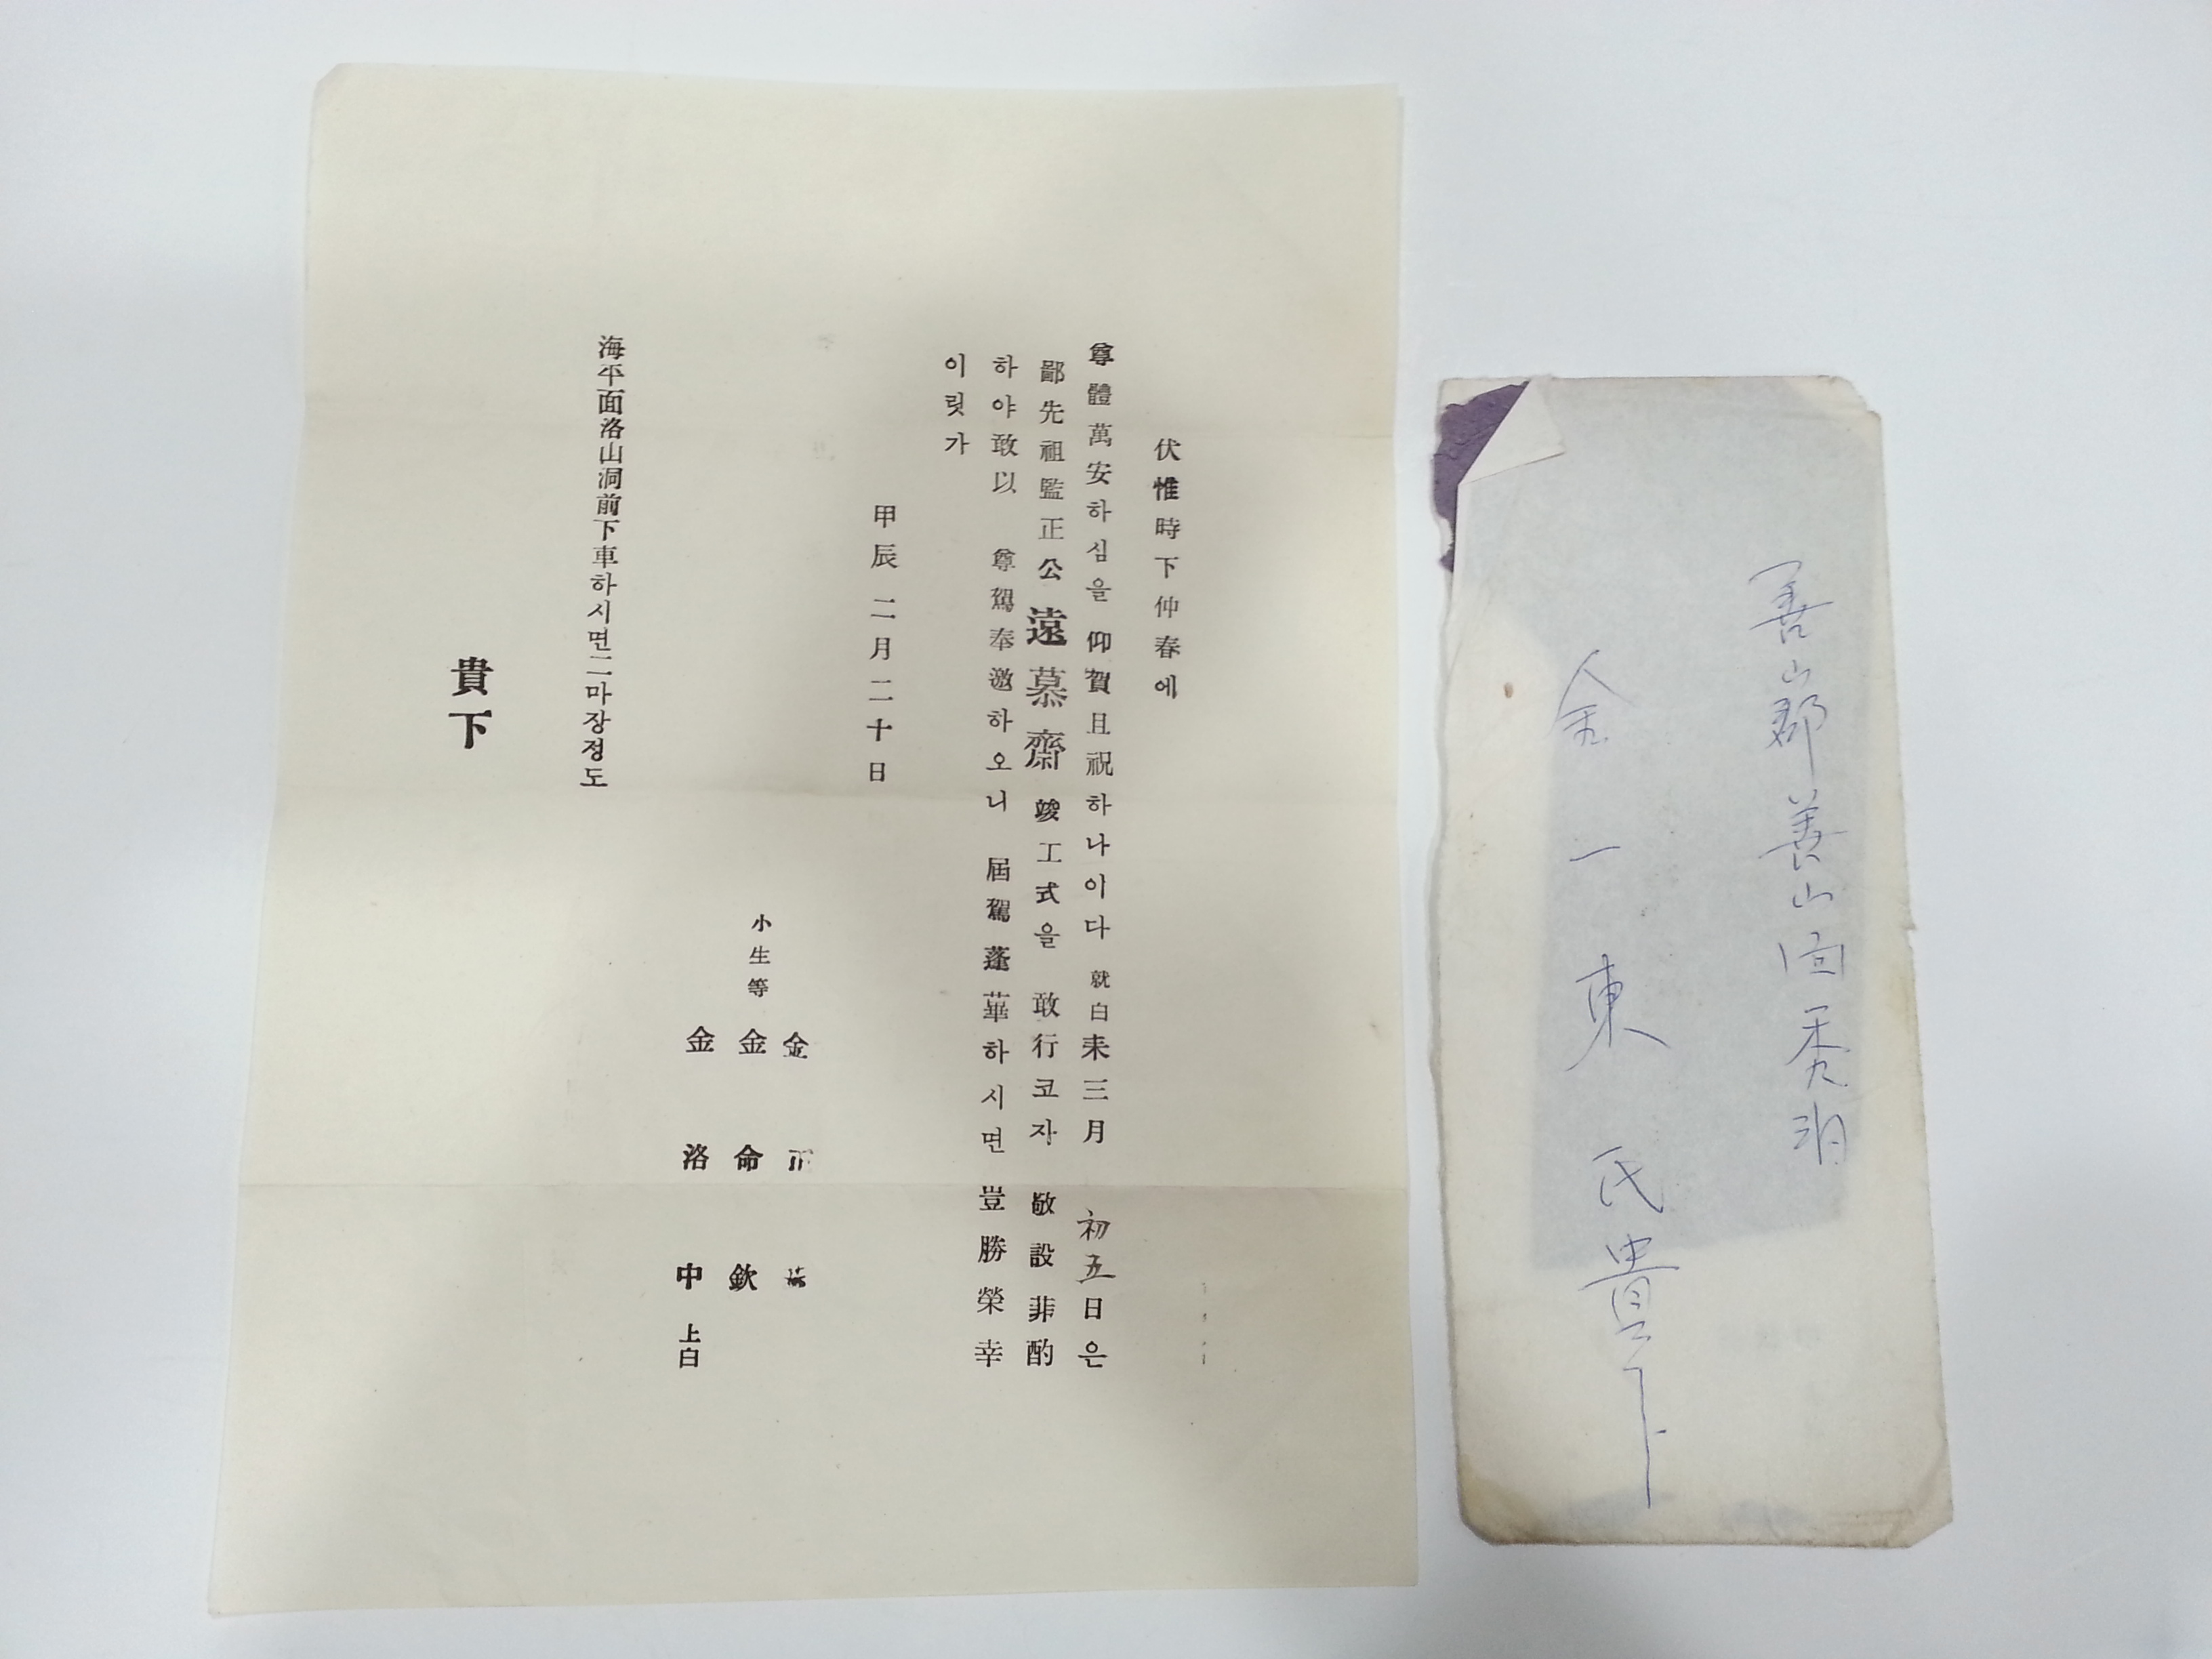 伏惟時下仲春에
尊體萬安하심을 仰賀且祝하나이다 就白来三月 初五日은
鄙先祖監正公遠慕齋竣工式을 敢行코자 敬設菲酌
하야敢以 尊駕奉邀하오니 屆駕蓬蓽하시면 豈勝榮幸
이릿가
甲辰二月二十日
小生等
金
金命欽
金洛中上白
海平面洛山洞前下車하시면二마장정도
貴下
善山郡善山面
金一東氏貴下